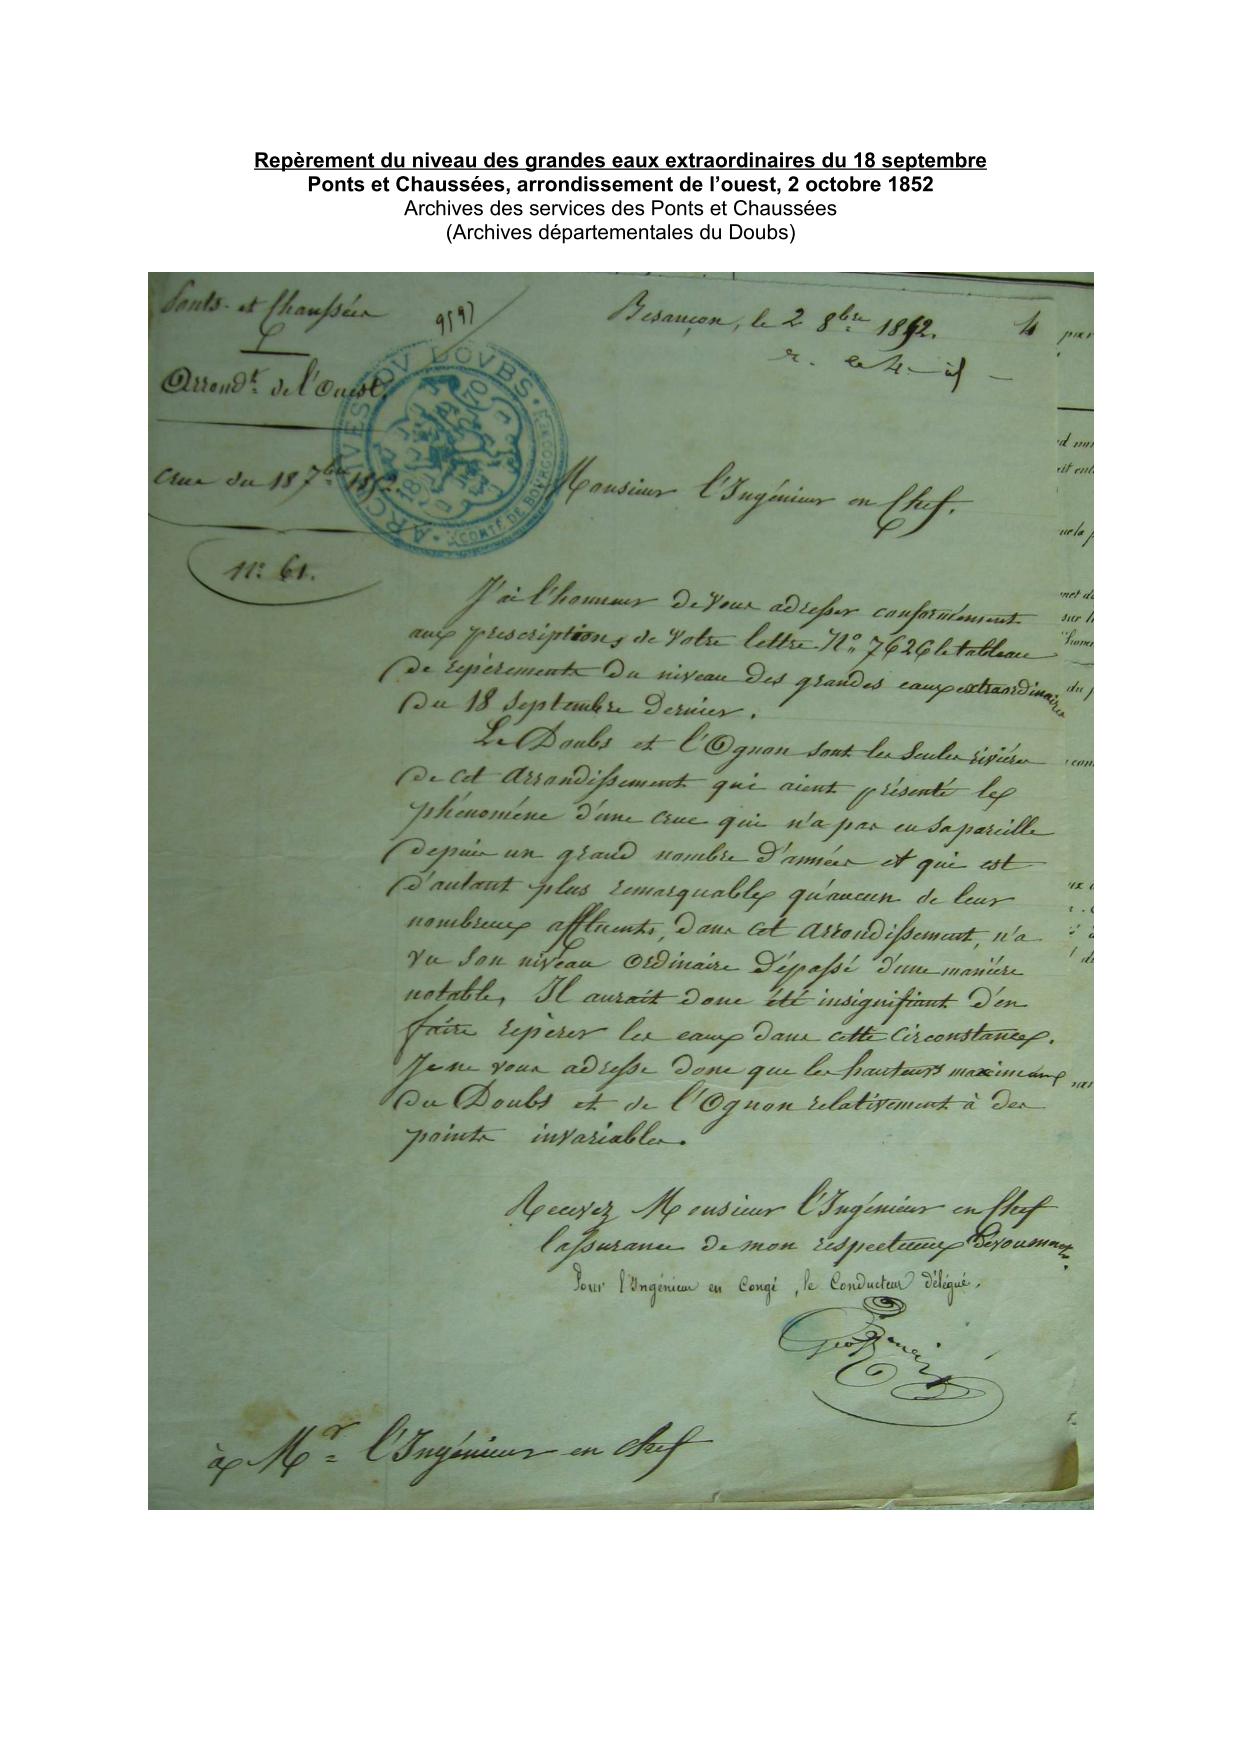 Repèrement du niveau des grandes eaux extraordinaires du 18 septembre
Ponts et Chaussées, arrondissement de l’ouest, 2 octobre 1852
Archives des services des Ponts et Chaussées
(Archives départementales du Doubs)
Ponts et Chaussées
9597
Besançon, le 2 8bre 1852.
4
Arrondt de l'Ouest.
ARCHIVES DU DOUBS
COMTÉ DE BOURGOGNE
1870
crue du 18 7bre 1852
Monsieur l'Ingénieur en Chef.
N° 61.
J'ai l'honneur de vous adresser conformément
aux prescriptions de votre lettre N° 7626 le tableau
de repèrements du niveau des grandes eaux extraordinaires
du 18 Septembre dernier.
Le Doubs et l'Ognon sont les seules rivières
de cet arrondissement qui aient présenté le
phénomène d'une crue qui n'a pas eu sa pareille
depuis un grand nombre d'années et qui est
d'autant plus remarquable qu'aucun de leur
nombreux affluents, dans cet arrondissement, n'a
vu son niveau ordinaire dépassé d'une manière
notable, Il aurait donc été insignifiant d'en
faire repérer les eaux dans cette circonstance.
Je ne vous adresse donc que les hauteurs maximum
du Doubs et de l'Ognon relativement à des
points invariables.
Recevez Monsieur l'Ingénieur en Chef
l'assurance de mon respectueux Dévouement.
Pour l'Ingénieur en Congé, le Conducteur délégué.
à Mr l'Ingénieur en chef